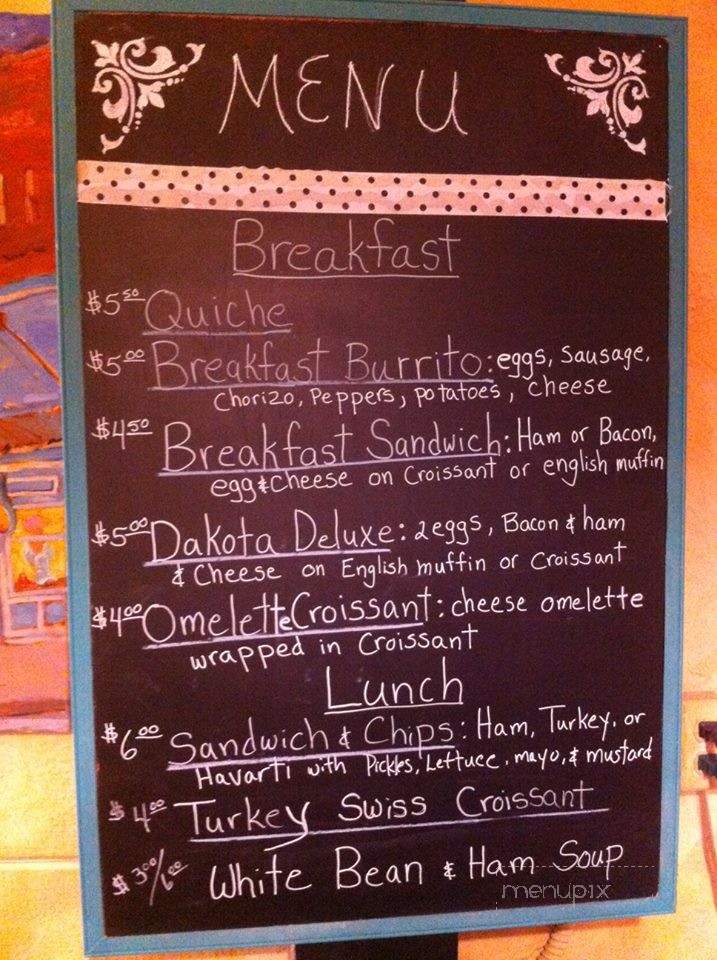 MENU
Breakfast
$5.50 Quiche
$5.00 Breakfast Burrito: eggs, Sausage,
Chorizo, Peppers, potatoes, cheese
$4.50 Breakfast Sandwich: Ham or Bacon,
egg & cheese on Croissant or english muffin
$5.00 Dakota Deluxe: 2 eggs, Bacon & ham
& Cheese on English muffin or Croissant
$4.00 Omelette Croissant: cheese omelette
wrapped in Croissant
Lunch
$6.00 Sandwich & Chips: Ham, Turkey, or
Havarti with Pickles, Lettuce, mayo, & mustard
$4.00 Turkey Swiss Croissant
$3.00/6.00 White Bean & Ham Soup
menupix